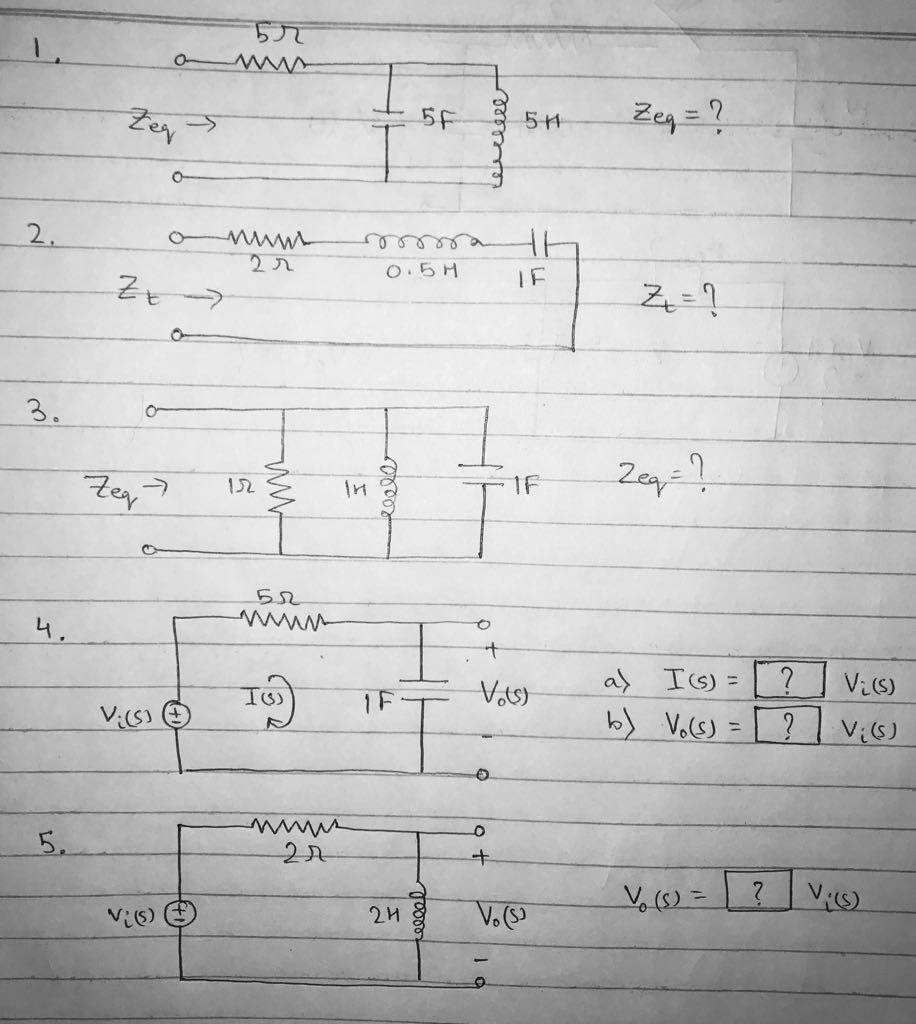 1.
5Ω
Zeq →
5F
5H
Zeq = ?
2.
2Ω
0.5H
1F
Zt →
Zt = ?
3.
Zeq →
1Ω
1H
1F
Zeq = ?
4.
5Ω
Vi(s)
±
I(s)
1F
+
Vo(s)
-
a) I(s) = ? Vi(s)
b) Vo(s) = ? Vi(s)
5.
2Ω
Vi(s)
±
2H
+
Vo(s)
-
Vo(s) = ? Vi(s)